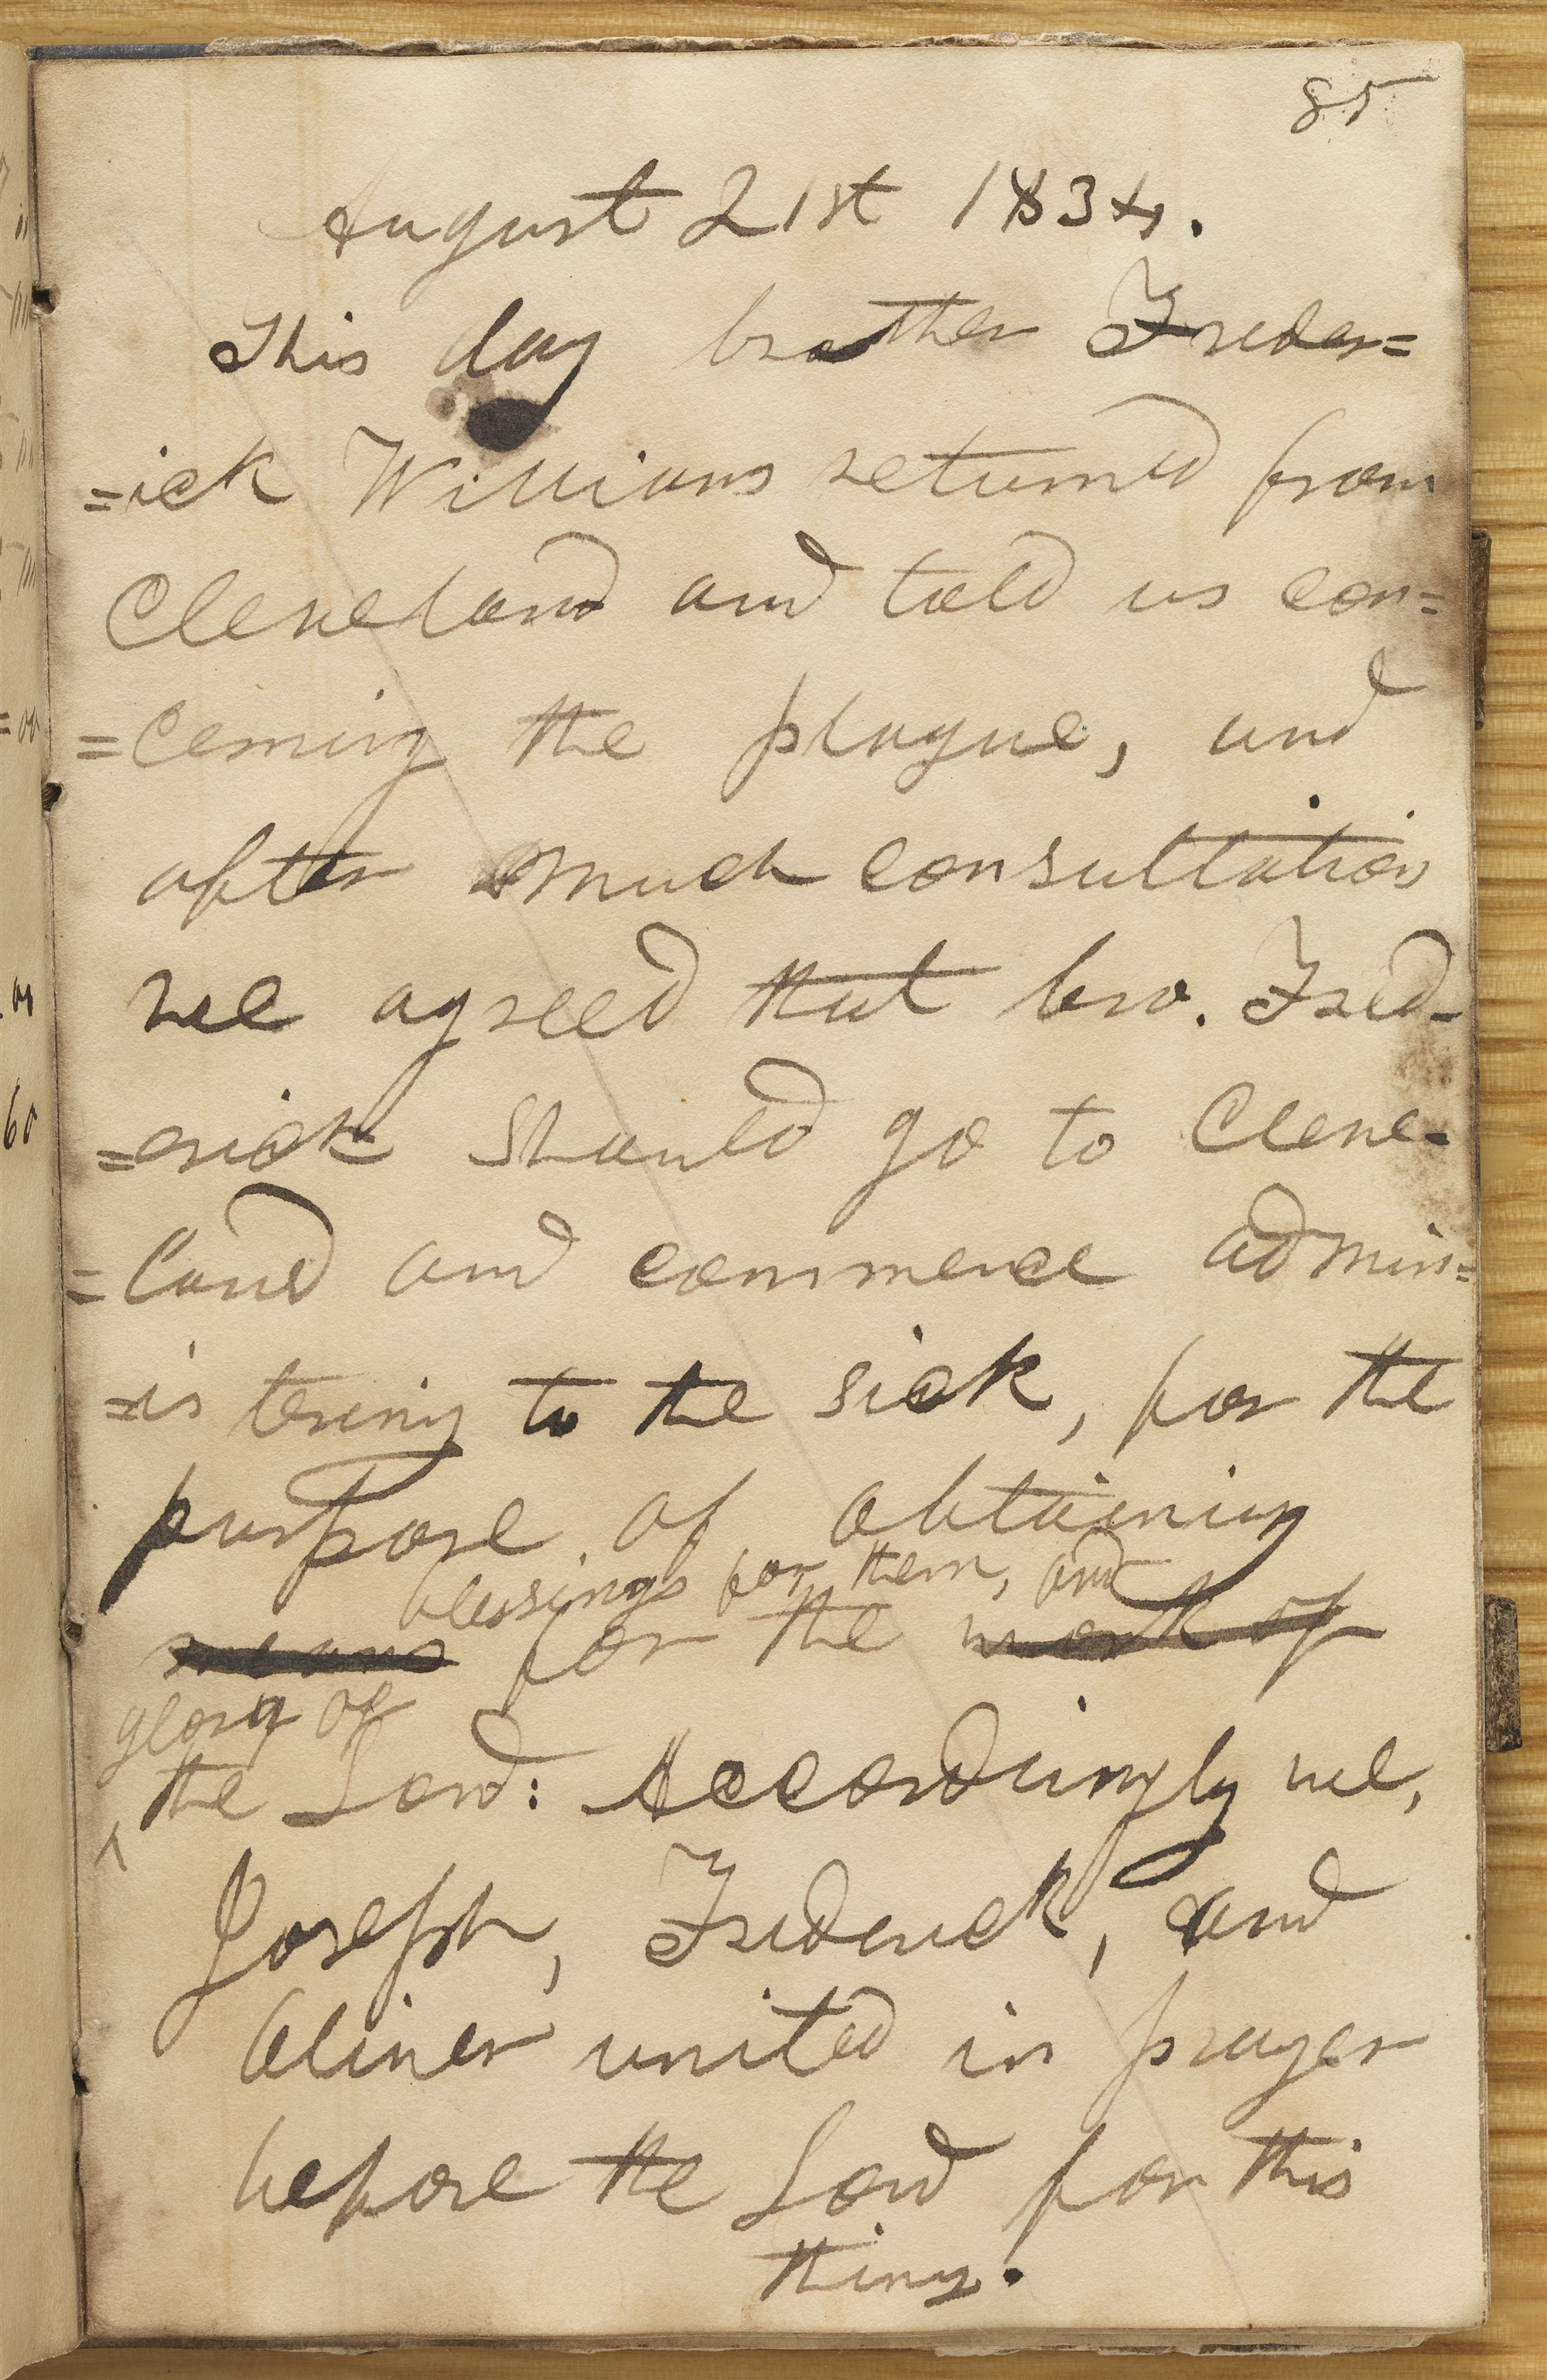 85
August 21st 1834.
This day brother Freder=
=ick Williams returned from
Cleveland and told us con=
=cerning the plague, and
after much consultation
we agreed that bro. Fred-
=erick should go to Cleve-
=land and commence admin=
=istering to the sick, for the
purpose of obtaining
blessings for them, and
means for the work of
glory of
the Lord: Accordingly we,
Joseph, Frederick, and
Oliver united in prayer
before the Lord for this
thing.